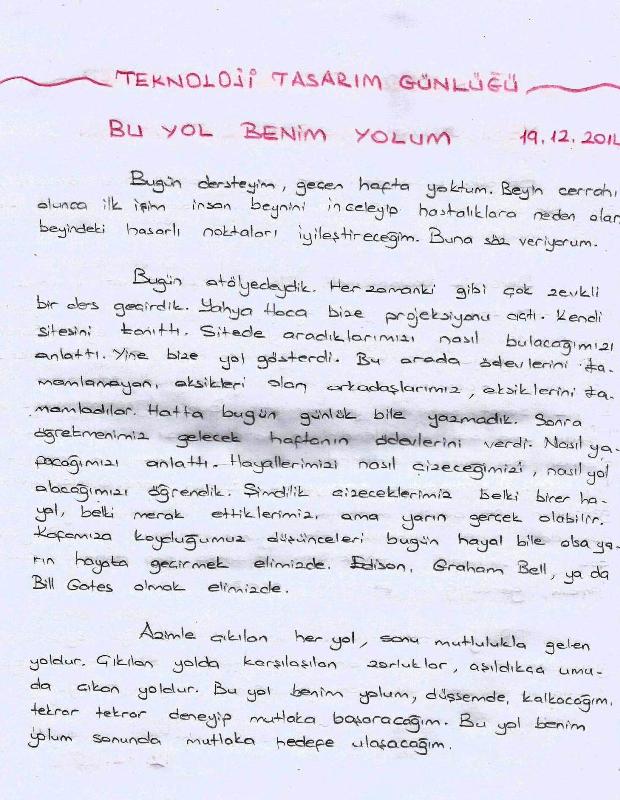 TEKNOLOJİ TASARIM GÜNLÜĞÜ
BU YOL BENİM YOLUM 19.12.201
Bugün dersteyim, geçen hafta yoktum. Beyin cerrahı
olunca ilk işim insan beynini inceleyip hastalıklara neden olan
beyindeki hasarlı noktaları iyileştireceğim. Buna söz veriyorum.
Bugün atölyedeydik. Her zamanki gibi çok zevkli
bir ders geçirdik. Yahya Hoca bize projeksiyonu açtı. Kendi
sitesini tanıttı. Sitede aradıklarımızı nasıl bulacağımızı
anlattı. Yine bize yol gösterdi. Bu arada ödevlerini ta-
mamlamayan, eksikleri olan arkadaşlarımız, eksiklerini ta-
mamladılar. Hatta bugün günlük bile yazmadık. Sonra
öğretmenimiz gelecek haftanın ödevlerini verdi. Nasıl ya-
pacağımızı anlattı. Hayallerimizi nasıl çizeceğimizi, nasıl yol
alacağımızı öğrendik. Şimdilik çizeceklerimiz belki birer ha-
yal, belki merak ettiklerimiz, ama yarın gerçek olabilir.
Kafamıza koyduğumuz düşünceleri bugün hayal bile olsa ya-
rın hayata geçirmek elimizde. Edison, Graham Bell, ya da
Bill Gates olmak elimizde.
Azimle çıkılan her yol, sonu mutlulukla gelen
yoldur. Çıkılan yolda karşılaşılan zorluklar, aşıldıkça umu-
da çıkan yoldur. Bu yol benim yolum, düşsemde, kalkacağım,
tekrar tekrar deneyip mutlaka başaracağım. Bu yol benim
yolum sonunda mutlaka hedefe ulaşacağım.